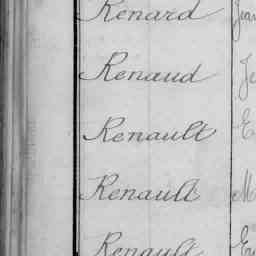 Renard
Renaud
Renault
Renault
Renault